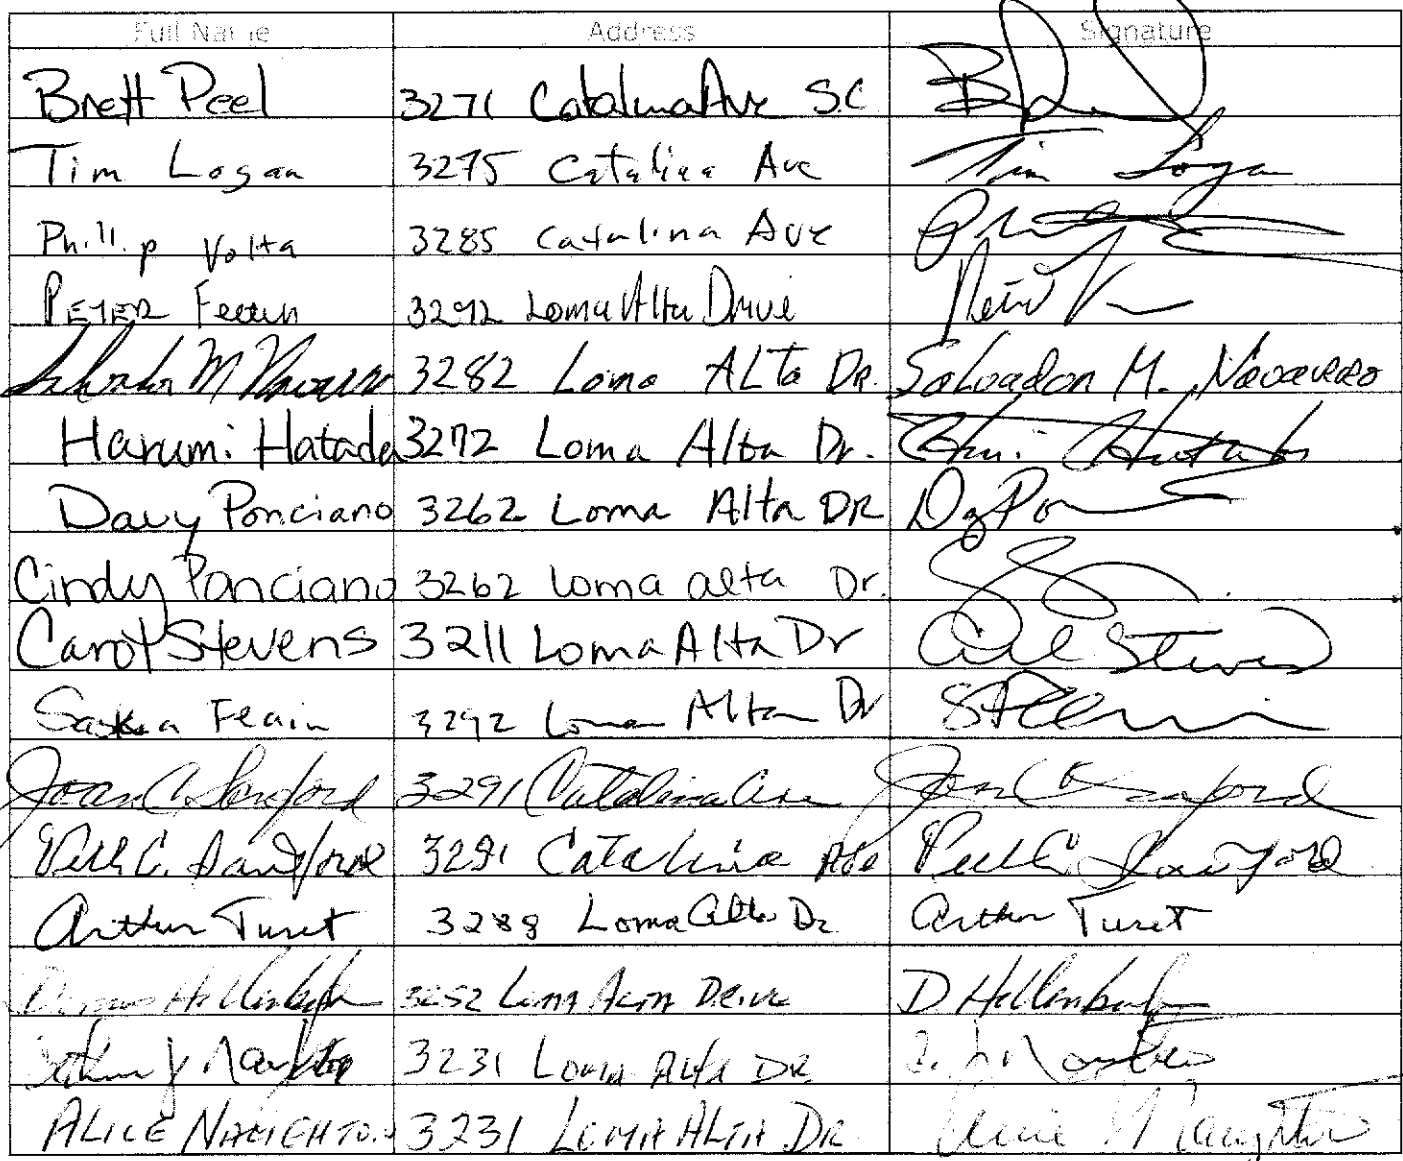 Full Name Address Signature
Brett Peel 3271 Catalina Ave S.C
Tim Logan 3275 Catalina Ave Tim Logan
Phillip Volta 3285 Catalina Ave
PETER 3292 Loma Alta Drive
3282 Loma ALTA DR. Salvador M. Navarro
Harumi Hatada 3272 Loma Alta Dr.
Davy Ponciano 3262 Loma Alta DR
Cindy Ponciano 3262 Loma alta Dr.
Carol Stevens 3211 Loma Alta Dr Carol Stevens
Saskia Feain 3292 Loma Alta Dr
Joan C. Sanford 3291 Catalina Ave Joan C Sanford
C. Sandford 3291 Catalina Ave
Arthur Turet 3288 Loma Alta Dr Arthur Turet
3252 Loma Alta Drive D Hellenbach
3231 Loma Alta DR.
ALICE NAUGHTON 3231 LOMA ALTA DR.